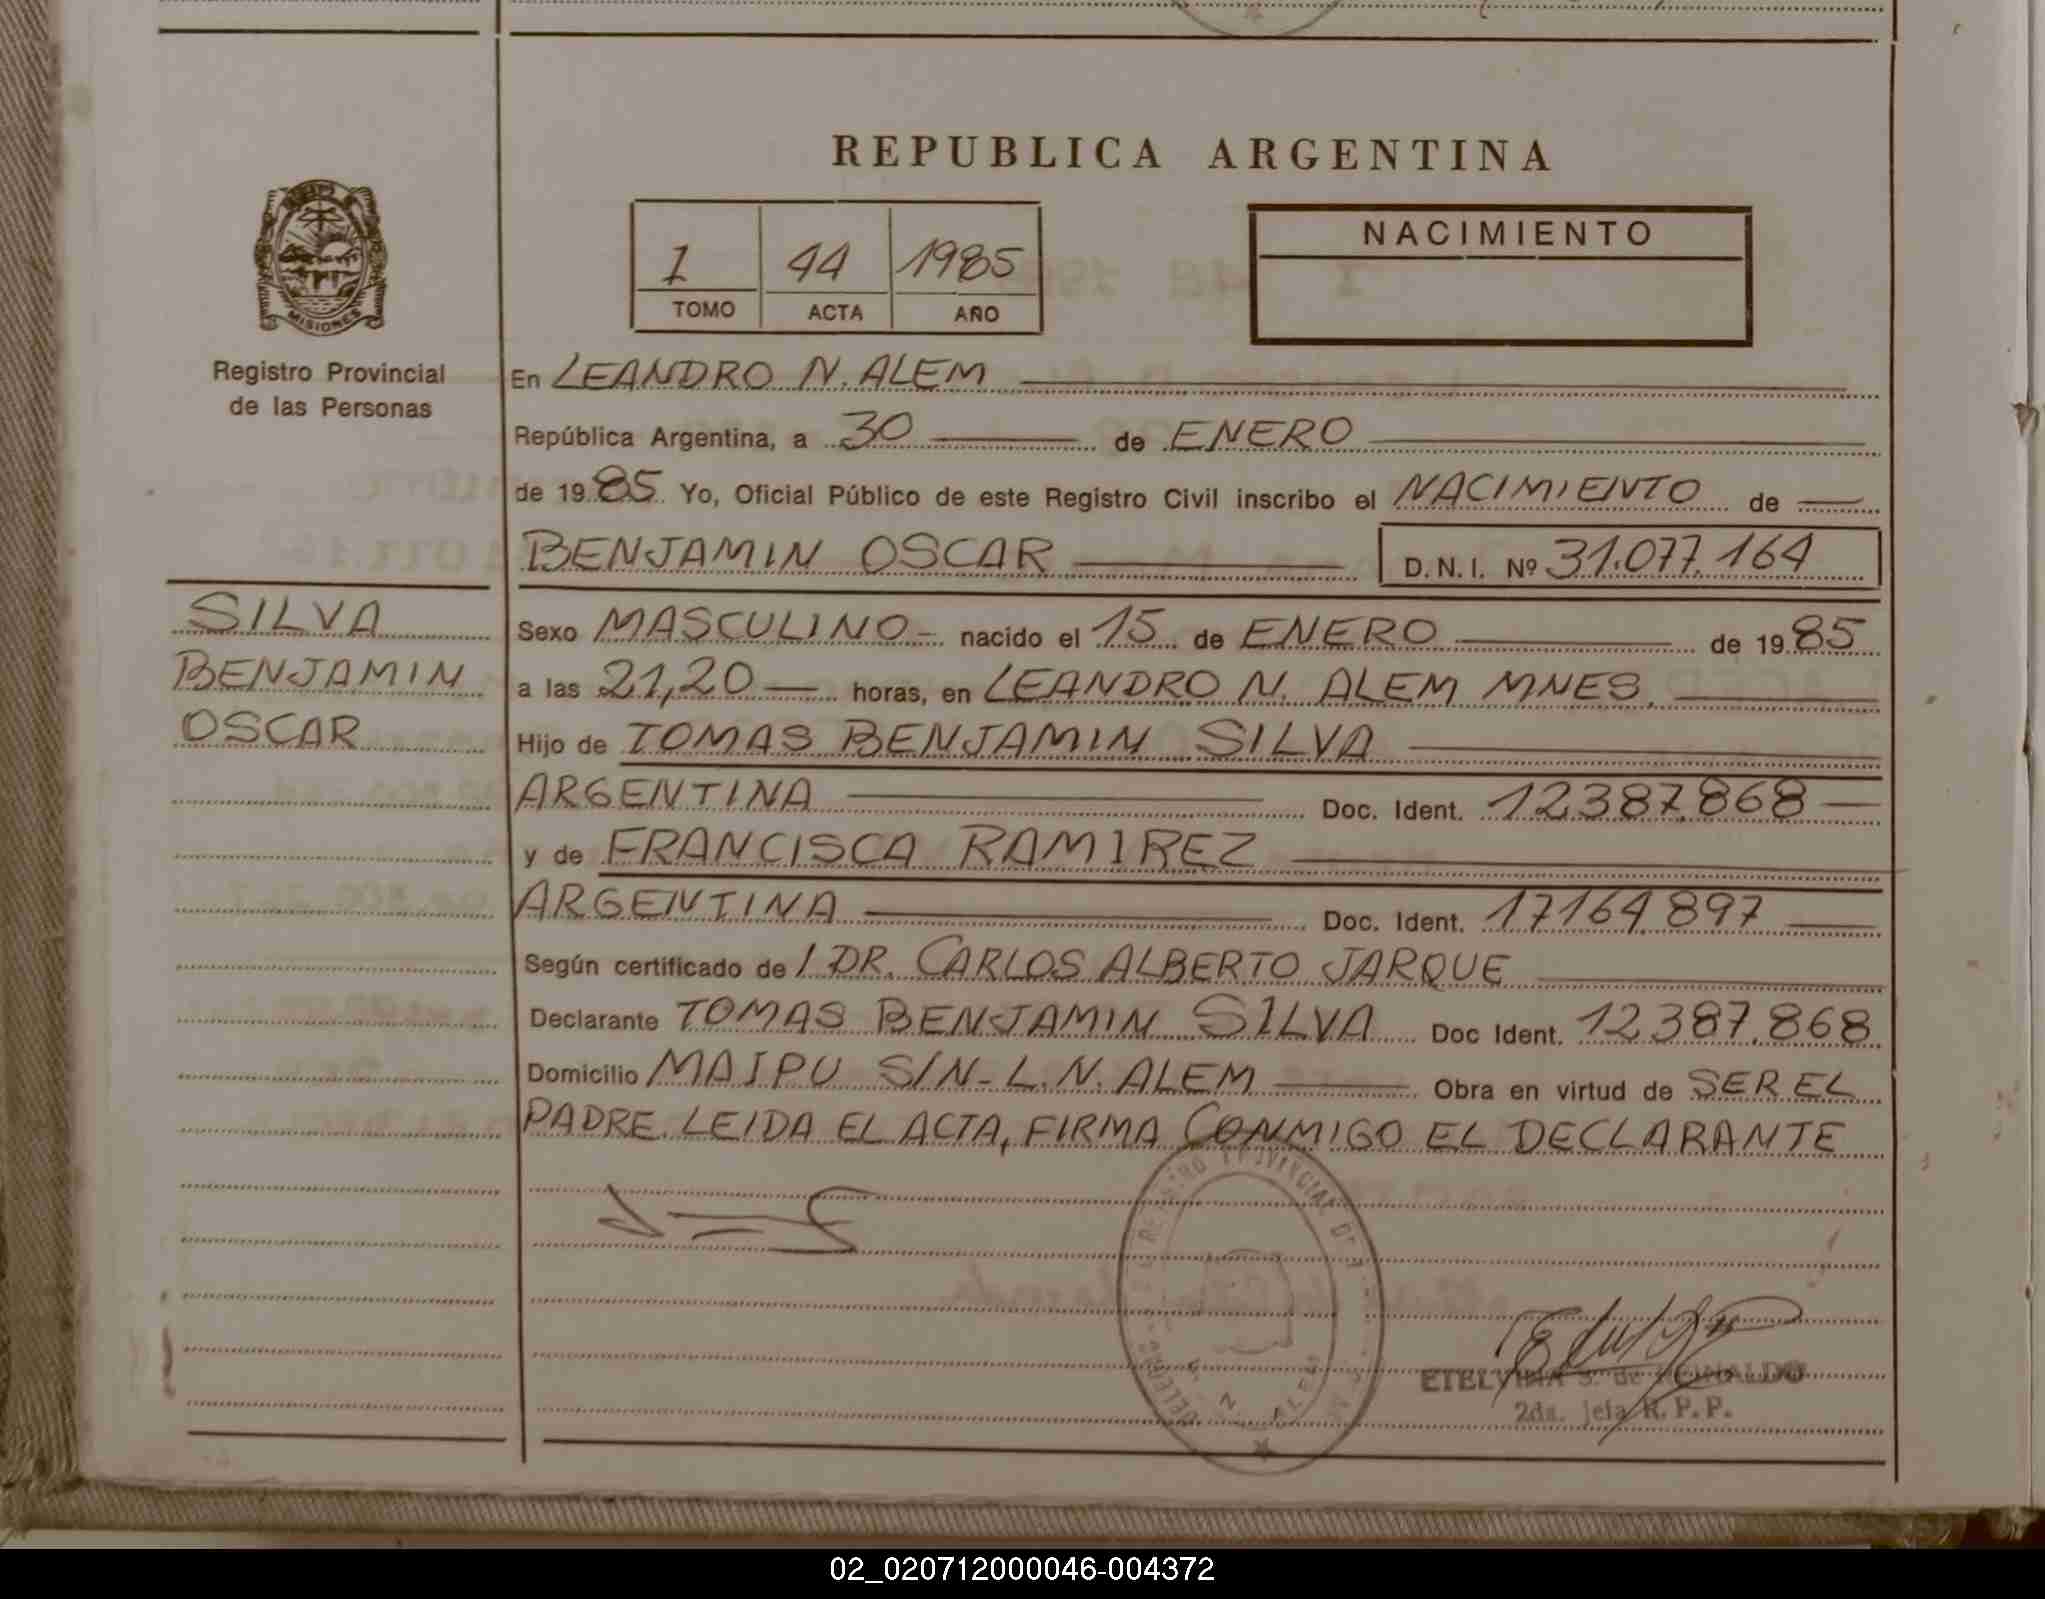 REPUBLICA ARGENTINA
1 44 1985
TOMO ACTA AÑO
NACIMIENTO
MISIONES
Registro Provincial
de las Personas
En LEANDRO N. ALEM
República Argentina, a 30 de ENERO
de 1985 Yo, Oficial Público de este Registro Civil inscribo el NACIMIENTO de
BENJAMIN OSCAR D.N.I. Nº 31.077.164
SILVA
BENJAMIN
OSCAR
Sexo MASCULINO nacido el 15 de ENERO de 1985
a las 21,20 horas, en LEANDRO N. ALEM MNES.
Hijo de TOMAS BENJAMIN SILVA
ARGENTINA Doc. Ident. 12387.868
y de FRANCISCA RAMIREZ
ARGENTINA Doc. Ident. 17164.897
Según certificado de / DR. CARLOS ALBERTO JARQUE
Declarante TOMAS BENJAMIN SILVA Doc Ident. 12387.868
Domicilio MAIPU S/N-L.N. ALEM Obra en virtud de SER EL
PADRE. LEIDA EL ACTA, FIRMA CONMIGO EL DECLARANTE
ETELVINA S. de
2da. jefa R.P.P.
02_020712000046-004372